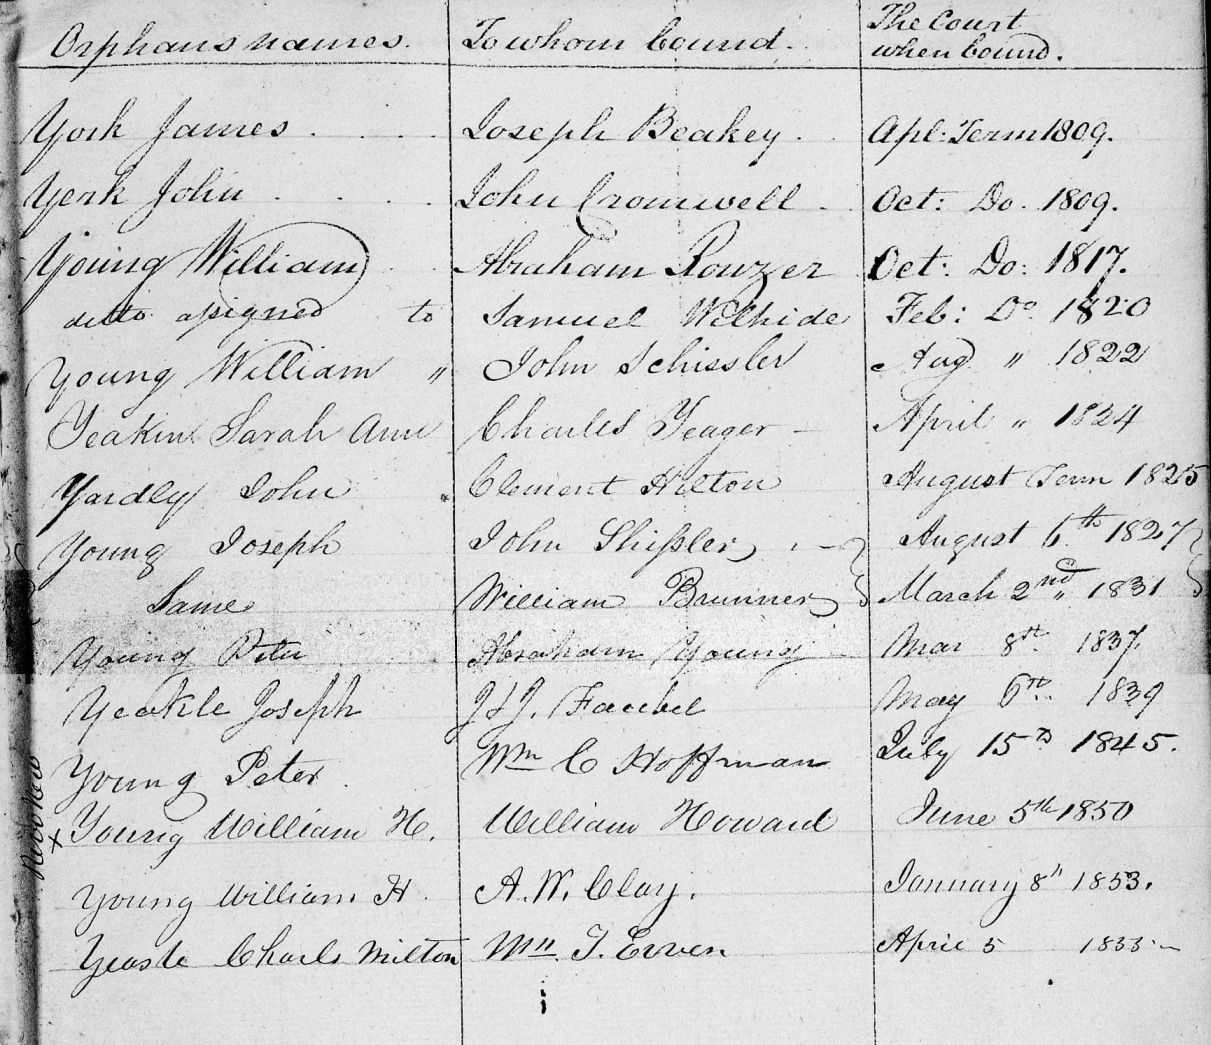 Orphans names. To whom bound. The Court
when bound.
York James . . . . Joseph Beakey . Apl: Term 1809.
York John . . . . John Cromwell . Oct: Do. 1809.
Young William . . Abraham Rouzer Oct: Do: 1817.
ditto assigned to Samuel Wilhide Feb: Do 1820
Young William " John Schissler Aug " 1822
Yeakin Sarah Ann Charles Yeager - April " 1824
Yardly John Clement Hilton August Term 1825
Young Joseph John Shissler August 6th 1827
Same William Brunner March 2nd " 1831
Young Peter Abraham Young Mar 8th 1837.
Yeakle Joseph J & J. Faubel May 6th 1839
Young Peter. Wm C Hoffman July 15th 1845.
x Young William H. William Howard June 5th 1850
Young William H. A. W. Clay. January 8th 1853.
Yeaste Charls Milton Wm. T. Erven April 5